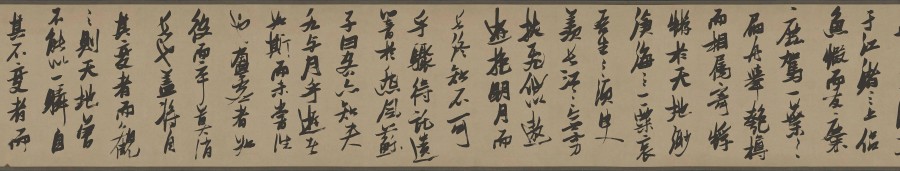 于江渚之上侣
魚蝦而友麋
鹿駕一葉之
扁舟舉匏樽
而相属寄蜉
蝣於天地渺
滄海之一粟哀
吾生之須臾
羨長江之無窮
挾飛仙以遨
遊抱明月而
長終知不可
乎驟得託遺
響於悲風蘇
子曰客亦知夫
水与月乎逝者
如斯而未嘗往
也盈虚者如
彼而卒莫消
長也盖将自
其變者而觀
之則天地曾
不能以一瞬自
其不變者而